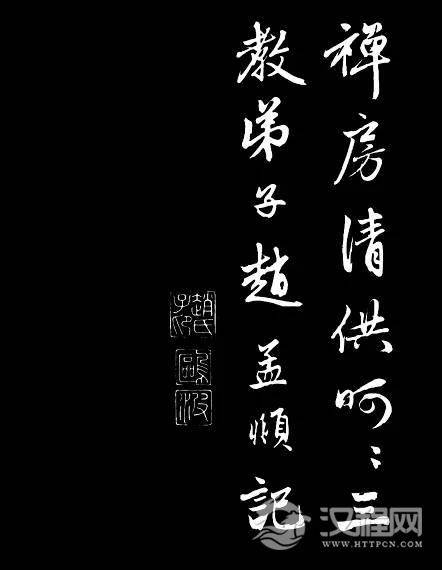 禪房清供呵〻三
教弟子趙孟頫記
趙氏子昂
鷗波
汉程网
WWW.HTTPCN.COM